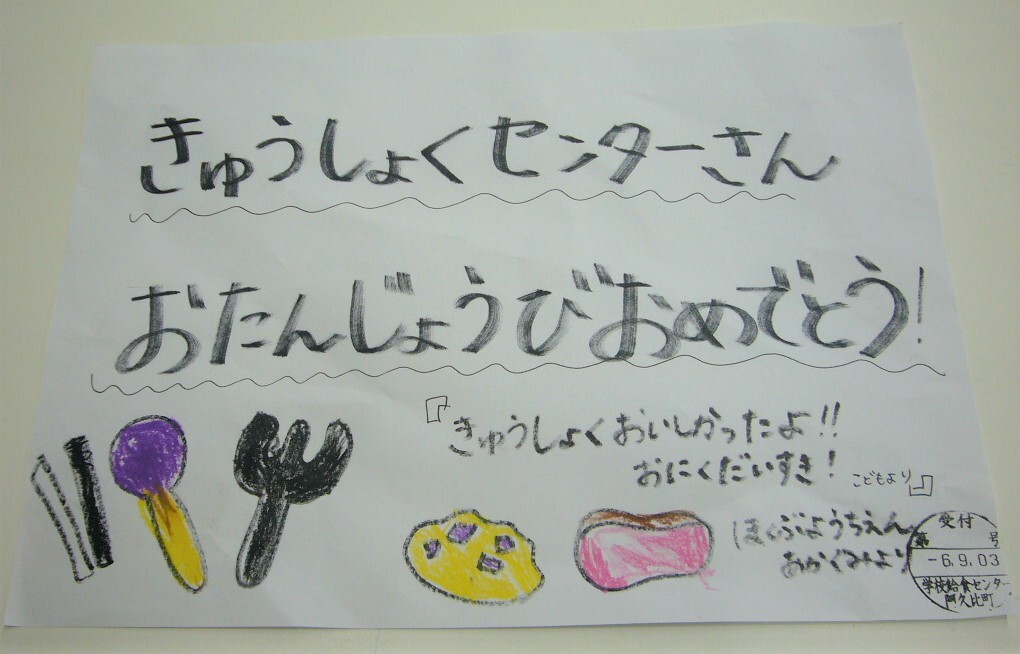 きゅうしょくセンターさん
おたんじょうびおめでとう!
『きゅうしょくおいしかったよ!!
おにくだいすき!
こどもより』
ほくぶようちえん
あかぐみより
受付
第 号
-6.9.03
学校給食センター
阿久比町